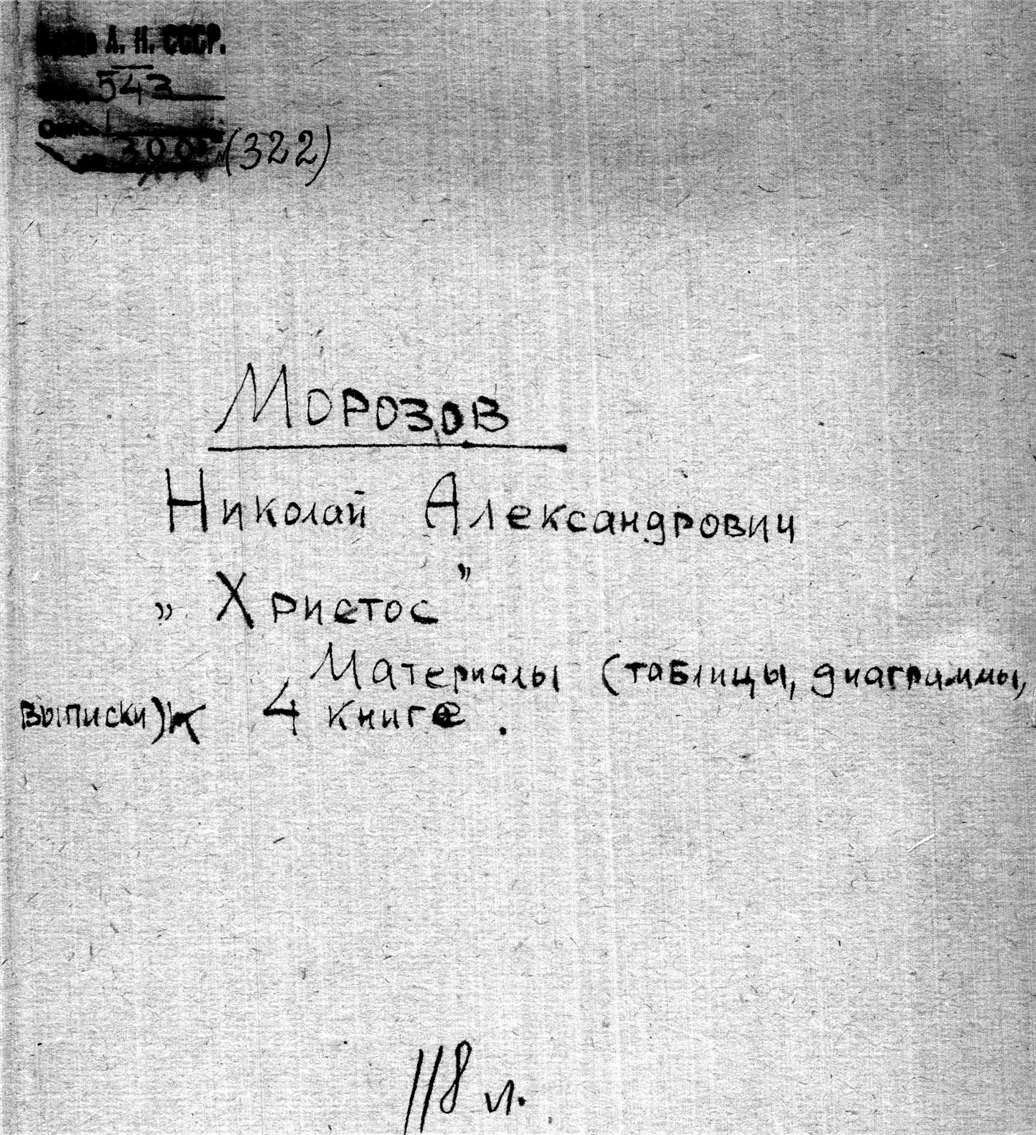 А. Н. СССР.
543
(322)
Морозов
Николай Александрович
„Христос”
Материалы (таблицы, диаграммы,
выписки) к 4 книге.
118 л.